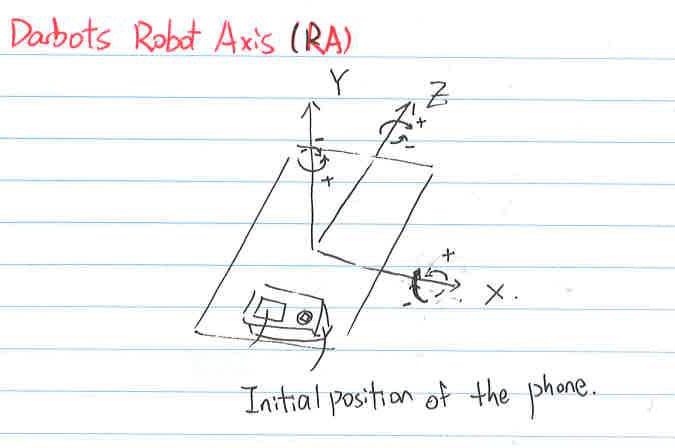 Darbots Robot Axis (RA)
Y
Z
+
-
-
+
+
-
X.
Initial position of the phone.